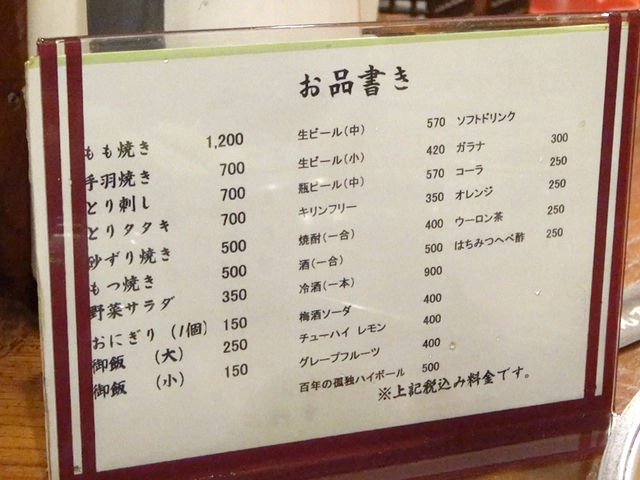 お品書き
もも焼き 1,200
手羽焼き 700
とり刺し 700
とりタタキ 700
砂ずり焼き 500
もつ焼き 500
野菜サラダ 350
おにぎり (1個) 150
御飯 (大) 250
御飯 (小) 150
生ビール(中) 570
生ビール(小) 420
瓶ビール(中) 570
キリンフリー 350
焼酎(一合) 400
酒(一合) 500
冷酒(一本) 900
梅酒ソーダ 400
チューハイ レモン 400
グレープフルーツ 400
百年の孤独ハイボール 500
ソフトドリンク
ガラナ 300
コーラ 250
オレンジ 250
ウーロン茶 250
はちみつへべ酢 250
※上記税込み料金です。